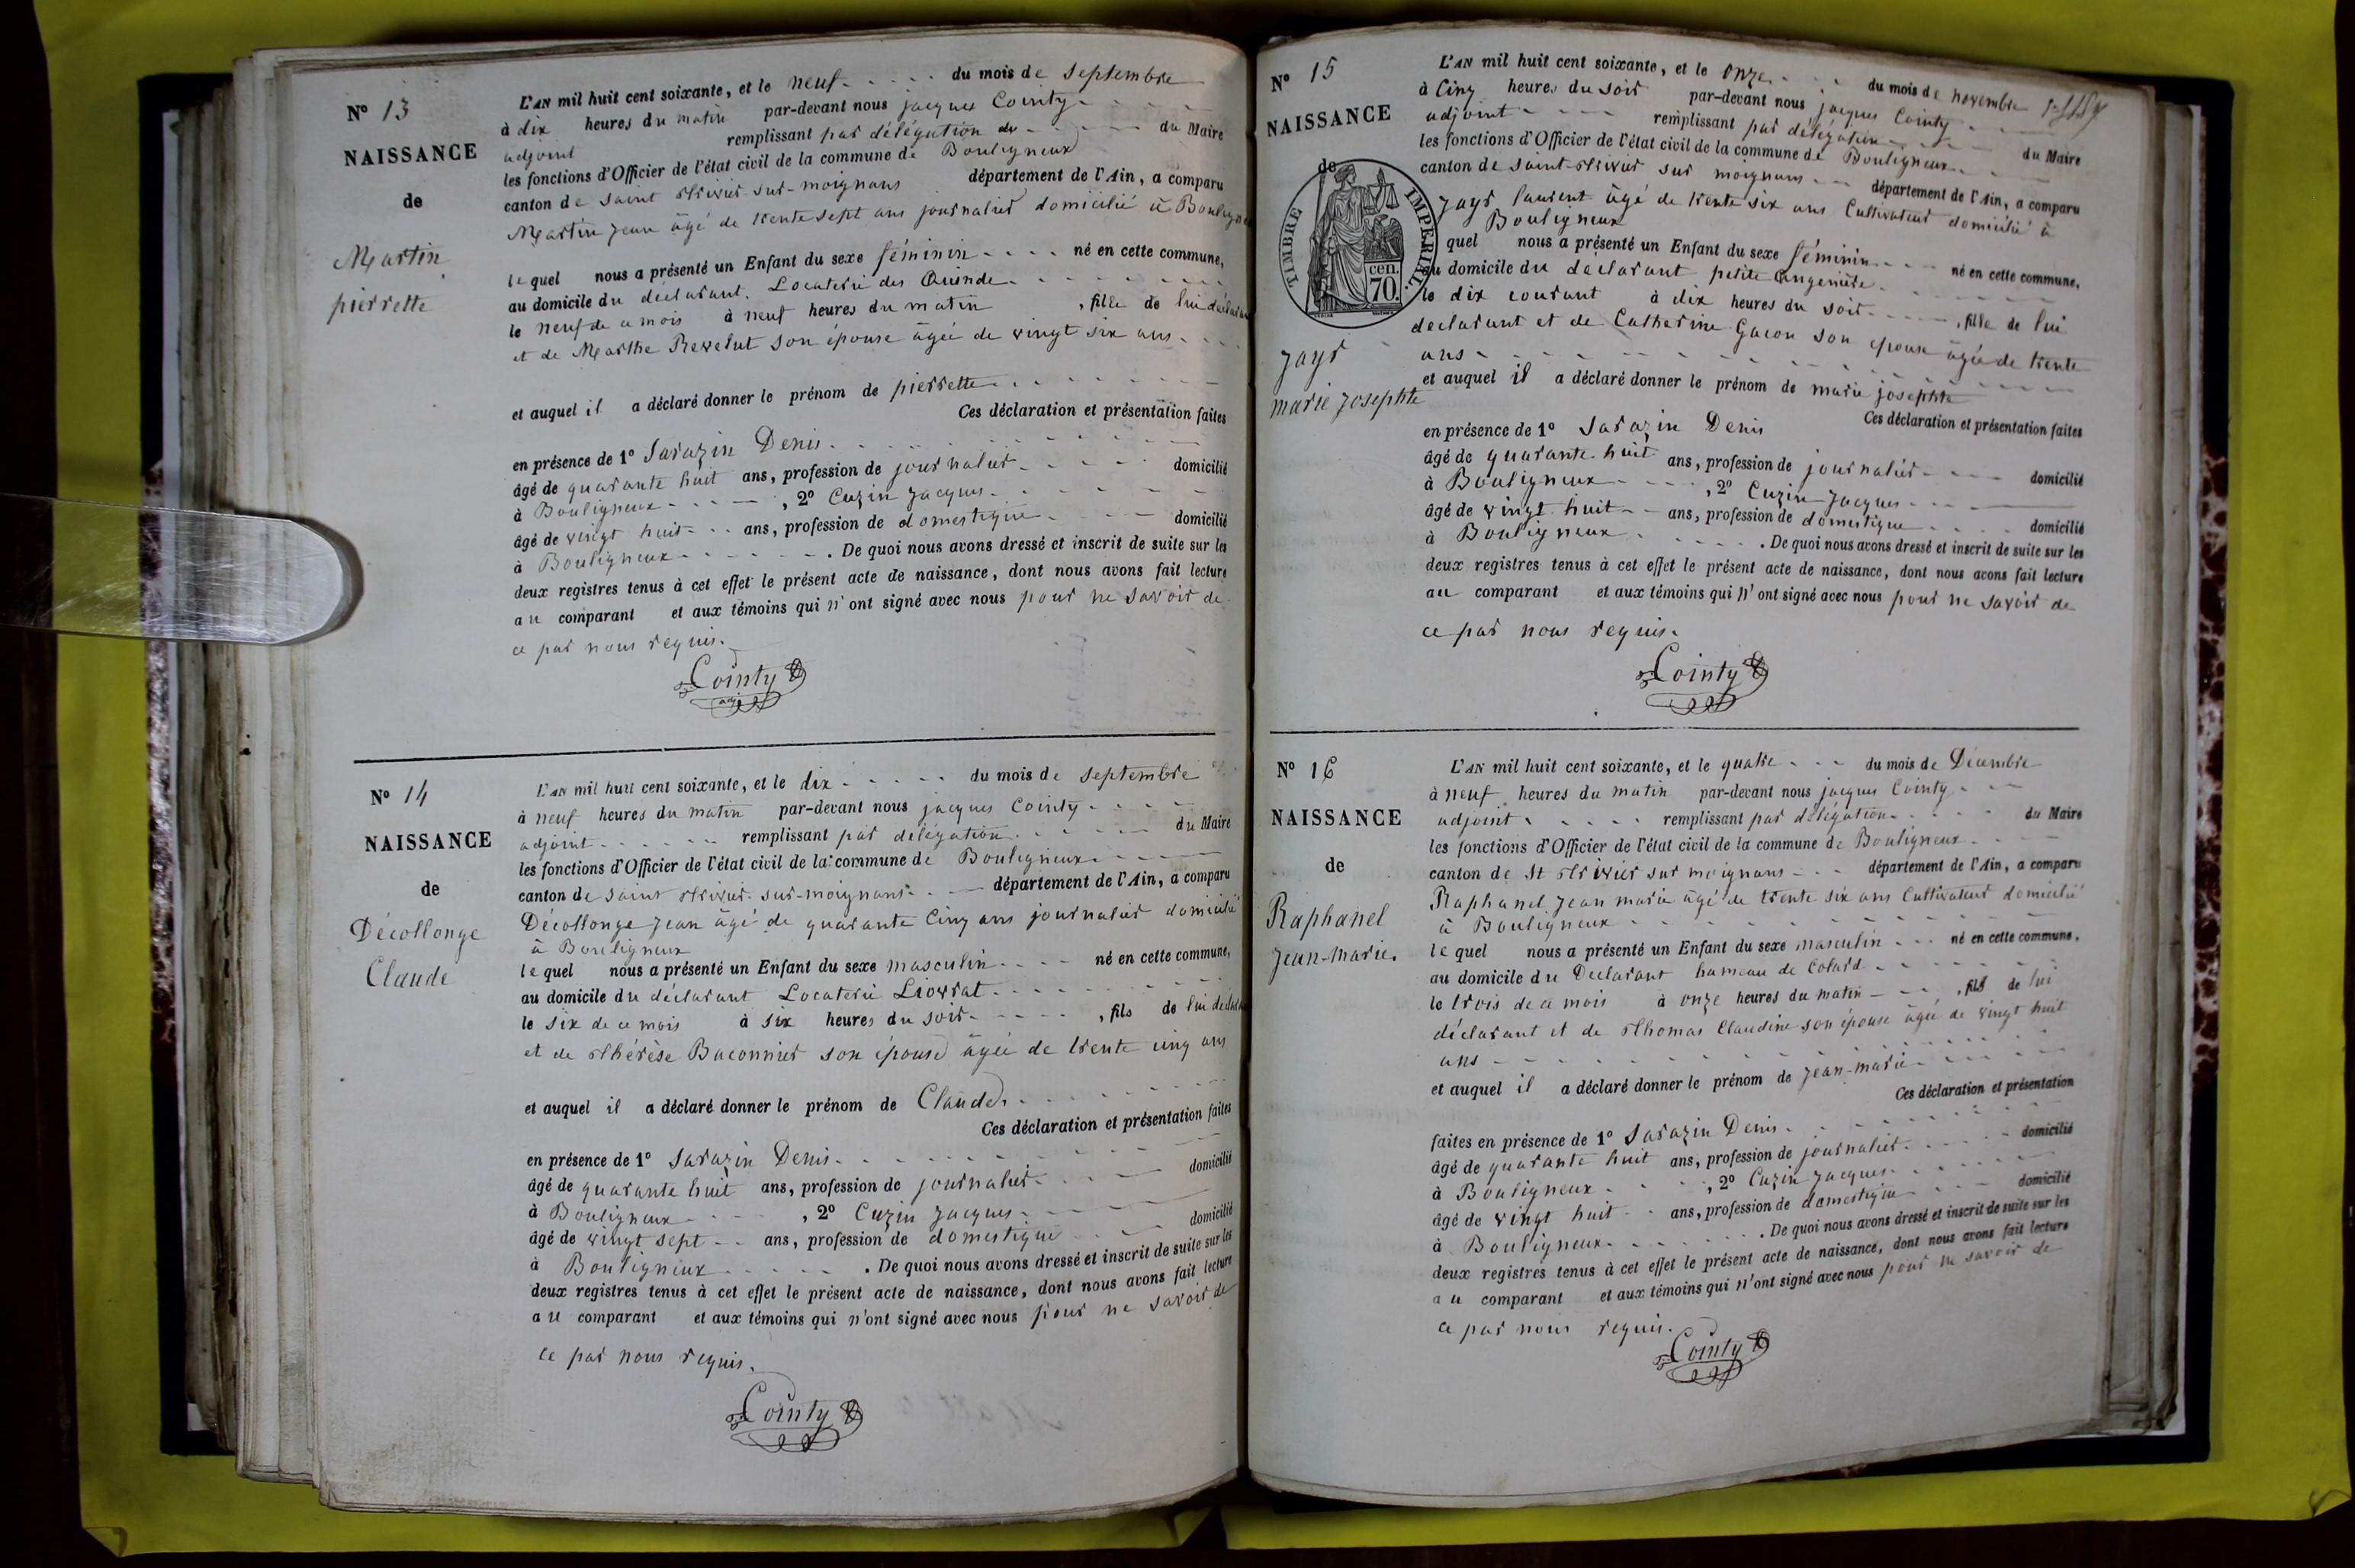 N° 13
NAISSANCE
de
Martin
pierrette
L'AN mil huit cent soixante, et le neuf du mois de septembre
à dix heures du matin par-devant nous jacques Cointy
adjoint remplissant par délégation du Maire
les fonctions d'Officier de l'état civil de la commune de Bouligneux
canton de saint trivier sur-moignans département de l'Ain, a comparu
Martin jean âgé de trente sept ans journalier domicilié à
le quel nous a présenté un Enfant du sexe féminin né en cette commune,
au domicile du déclarant. Locaterie des
le neuf de ce mois à neuf heures du matin , fille de lui
et de Marthe Revelut son épouse âgée de vingt six ans
et auquel il a déclaré donner le prénom de pierrette
Ces déclaration et présentation faites
en présence de 1° Sarazin Denis
âgé de quarante huit ans, profession de journalier domicilié
à Bouligneux , 2° Cuzin jacques
âgé de vingt huit ans, profession de domestique domicilié
à Bouligneux . De quoi nous avons dressé et inscrit de suite sur les
deux registres tenus à cet effet le présent acte de naissance, dont nous avons fait lecture
au comparant et aux témoins qui n'ont signé avec nous pour ne savoir de
ce par nous requis.
Cointy
adj
N° 14
NAISSANCE
de
Décollonge
Claude
L'AN mil huit cent soixante, et le dix du mois de septembre
à neuf heures du matin par-devant nous jacques Cointy
adjoint remplissant par délégation du Maire
les fonctions d'Officier de l'état civil de la commune de Bouligneux
canton de saint trivier-sur-moignans département de l'Ain, a comparu
Décollonge jean âgé de quarante cinq ans journalier domicilié
à Bouligneux
le quel nous a présenté un Enfant du sexe masculin né en cette commune,
au domicile du déclarant Locaterie Liovrat
le six de ce mois à six heures du soir , fils de lui
et de thérèse Baconnier son épouse âgée de trente cinq ans
et auquel il a déclaré donner le prénom de Claude.
Ces déclaration et présentation faites
en présence de 1° Sarazin Denis
âgé de quarante huit ans, profession de journalier domicilié
à Bouligneux , 2° Cuzin jacques
âgé de vingt sept ans, profession de domestique domicilié
à Bouligneux . De quoi nous avons dressé et inscrit de suite sur les
deux registres tenus à cet effet le présent acte de naissance, dont nous avons fait lecture
au comparant et aux témoins qui n'ont signé avec nous pour ne savoir de
ce par nous requis.
Cointy
N° 15
NAISSANCE
de
TIMBRE IMPERIAL.
cen.
70.
jayr
marie josephte
L'AN mil huit cent soixante, et le onze du mois de novembre
à cinq heures du soir par-devant nous jacques Cointy
adjoint remplissant par délégation du Maire
les fonctions d'Officier de l'état civil de la commune de Bouligneux
canton de saint-trivier sur moignans département de l'Ain, a comparu
jayr laurent âgé de trente six ans Cultivateur domicilié à
Bouligneux
quel nous a présenté un Enfant du sexe féminin né en cette commune,
au domicile du déclarant petite
le dix courant à dix heures du soir , fille de lui
declarant et de Catherine Gacon son épouse âgée de trente
ans
et auquel il a déclaré donner le prénom de marie josephte
Ces déclaration et présentation faites
en présence de 1° Sarazin Denis
âgé de quarante huit ans, profession de journalier domicilié
à Bouligneux , 2° Cuzin jacques
âgé de vingt huit ans, profession de domestique domicilié
à Bouligneux . De quoi nous avons dressé et inscrit de suite sur les
deux registres tenus à cet effet le présent acte de naissance, dont nous avons fait lecture
au comparant et aux témoins qui n'ont signé avec nous pour ne savoir de
ce par nous requis.
Cointy
N° 16
NAISSANCE
de
Raphanel
jean-marie.
L'AN mil huit cent soixante, et le quatre du mois de Décembre
à neuf heures du matin par-devant nous jacques Cointy
adjoint remplissant par délégation du Maire
les fonctions d'Officier de l'état civil de la commune de Bouligneux
canton de St trivier sur moignans département de l'Ain, a comparu
Raphanel jean marie âgé de trente six ans Cultivateur domicilié
à Bouligneux
le quel nous a présenté un Enfant du sexe masculin né en cette commune,
au domicile du Déclarant hameau de Colard
le trois de ce mois à onze heures du matin , fils de lui
déclarant et de thomas Claudine son épouse âgée de vingt huit
ans
et auquel il a déclaré donner le prénom de jean-marie
Ces déclaration et présentation
faites en présence de 1° Sarazin Denis
âgé de quarante huit ans, profession de journalier domicilié
à Bouligneux , 2° Cuzin jacques
âgé de vingt huit ans, profession de domestique domicilié
à Bouligneux . De quoi nous avons dressé et inscrit de suite sur les
deux registres tenus à cet effet le présent acte de naissance, dont nous avons fait lecture
au comparant et aux témoins qui n'ont signé avec nous pour ne savoir de
ce par nous requis.
Cointy